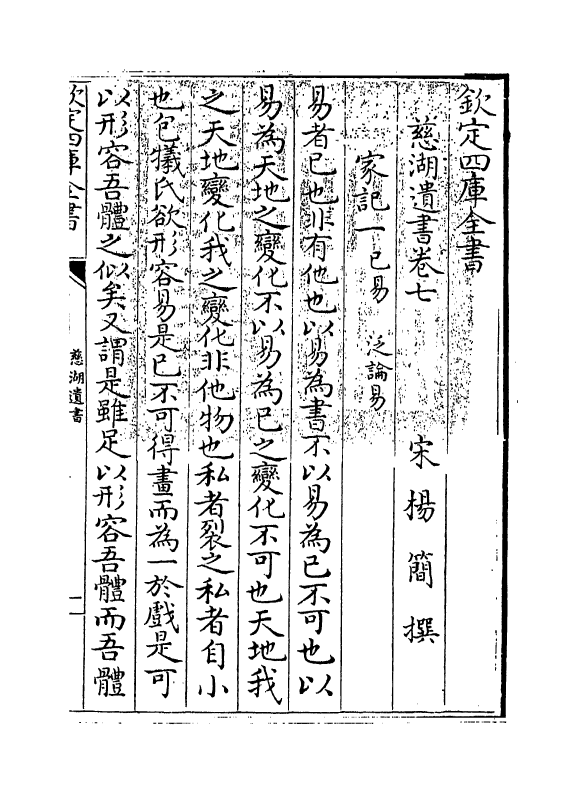 欽定四庫全書
慈湖遺書卷七
宋 揚 簡 撰
家記一 已易 泛論易
易者已也非有他也以易為書不以易為已不可也以
易為天地之變化不以易為已之變化不可也天地我
之天地變化我之變化非他物也私者裂之私者自小
也包犧氏欲形容易是已不可得畫而為一於戲是可
以形容吾體之似矣又謂是雖足以形容吾體而吾體
欽定四庫全書
慈湖遺書
一